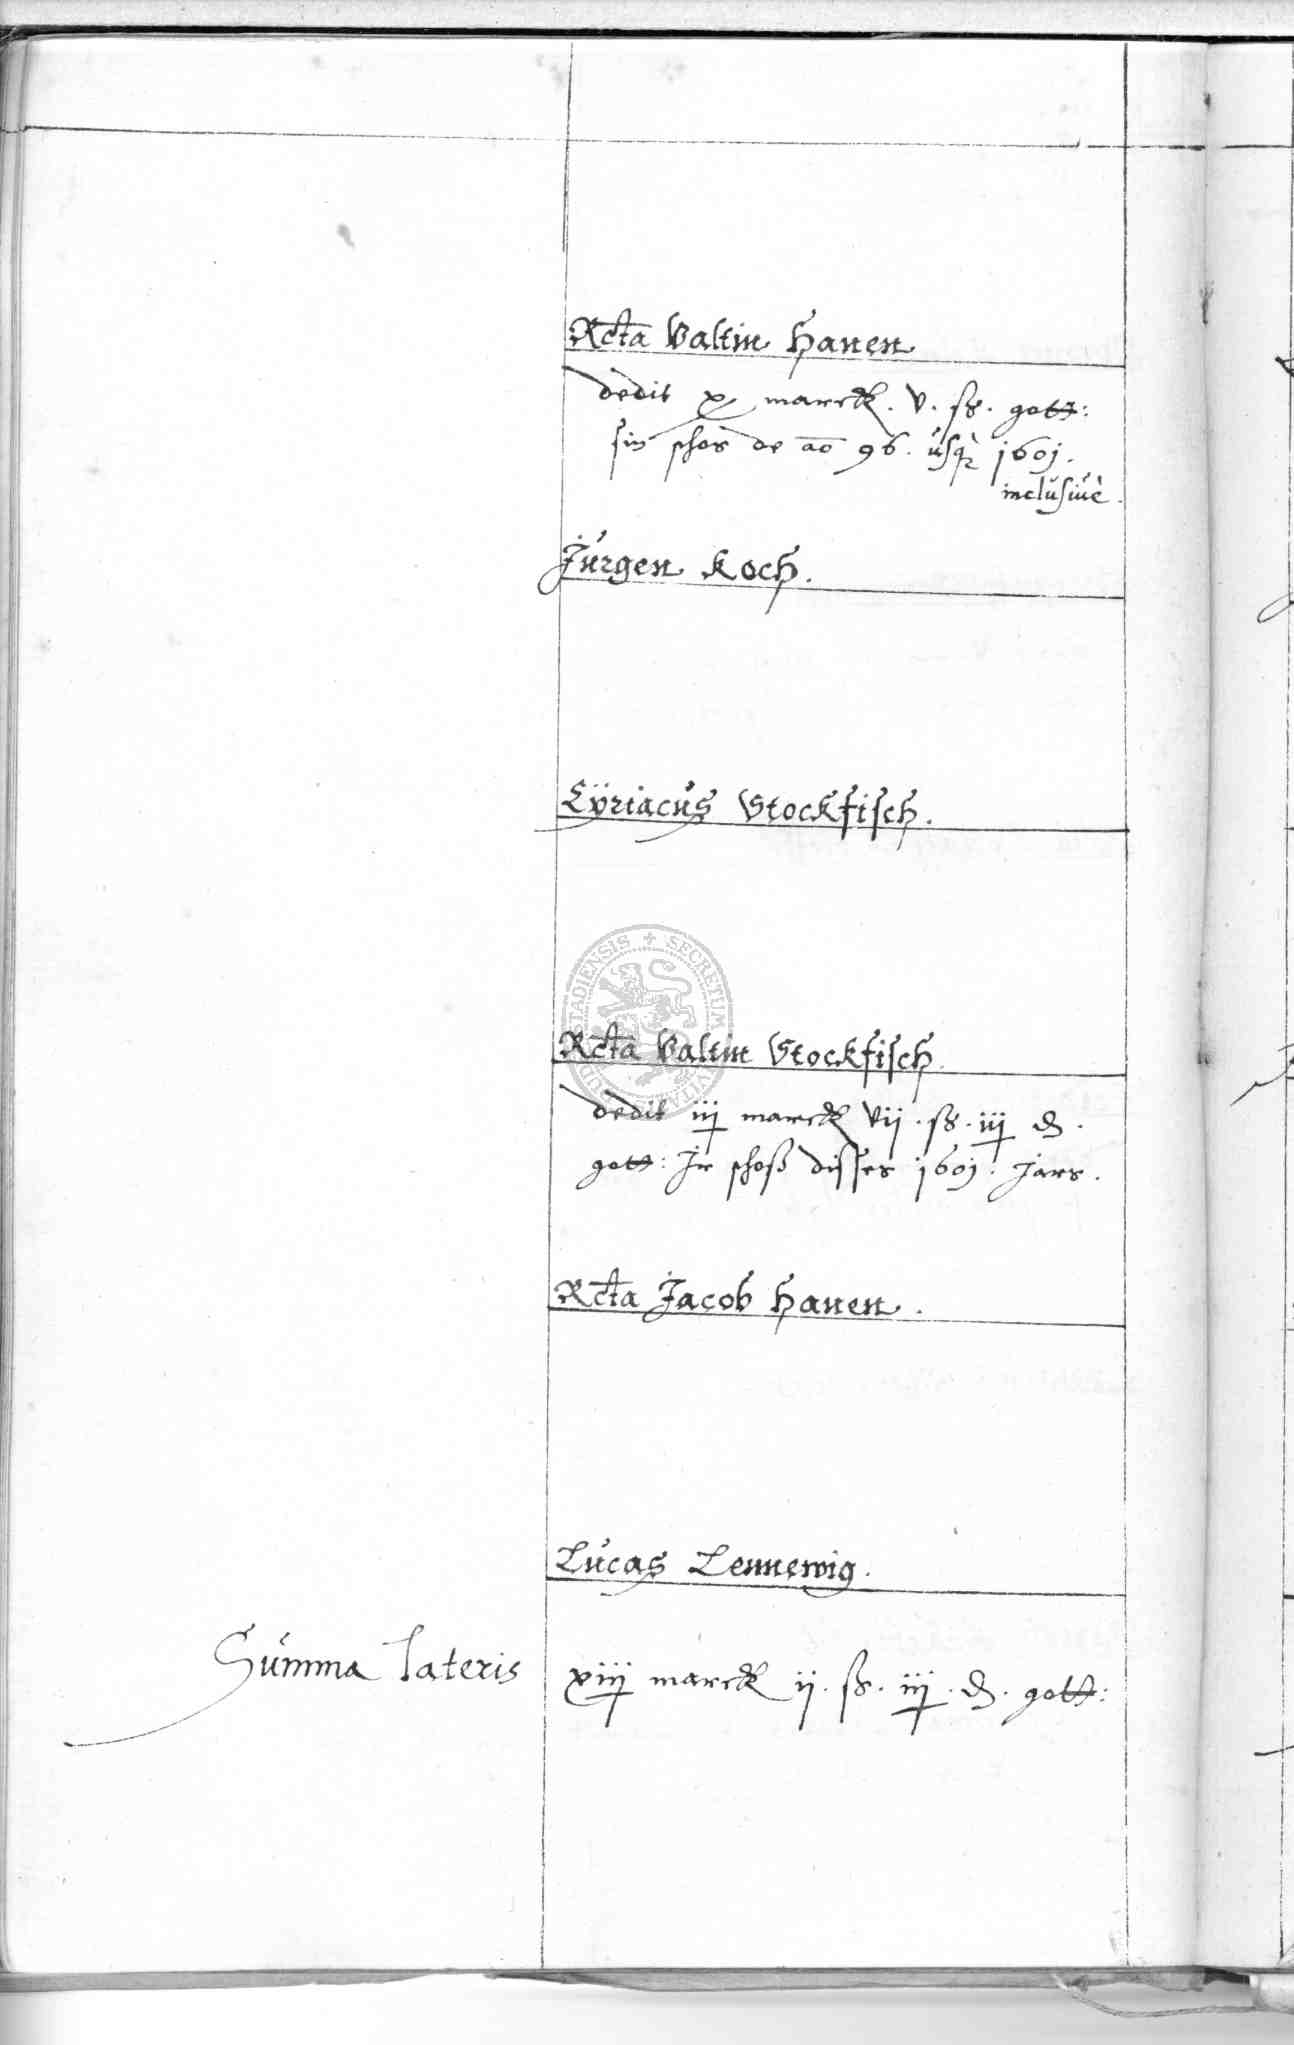 Rcta Valtin Hanen
dedit x marck. v. ß. gott:
sin schos de ao 96. usq 1601.
inclusiuè.
Jürgen Koch.
Cÿriacus Stockfisch.
Rcta Valtin Stockfisch.
dedit iij marck vij. ß. iij d.
gott: Jr schoß disses 1601. Jars.
Rcta Jacob Hanen.
Lucas Lennewig.
Summa lateris xiij marck ij. ß. iij. d. gott:
SECRETUM